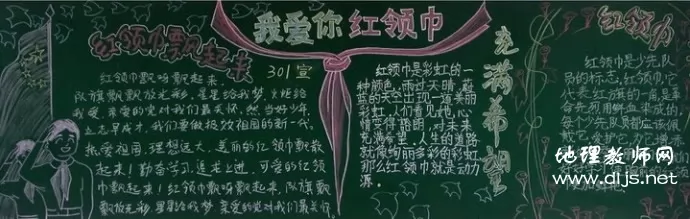 我爱你红领巾
红领巾飘起来
301宣
红领巾飘呀飘起来,
队旗飘飘放光彩,星星给我梦,火炬给
我爱,亲爱的党对我们最关怀,从当好少年
立志早成才,我们要做报效祖国的新一代。
热爱祖国,理想远大,美丽的红领巾飘
起来!勤奋学习,追求上进,可爱的红领
巾飘起来!红领巾飘呀飘起来,队旗飘飘
飘放光彩,星星给我梦,亲爱的党对我们最关怀
红领巾是彩虹的一
种颜色,雨过天晴,蔚
蓝的天空出现一道美丽
彩虹,人们看见他,心
情变得晴朗,对未来
充满希望,人生的道路
就像绚丽多彩的彩虹
那么红领巾就是动力
源。
充满希望
红领巾
红领巾是少先队
员的标志,红领巾,它
代表红旗的一角,是革
命先烈用鲜血染成的
每个少先队员都应该佩
戴它,爱护它
地理教师网
www.dljs.net